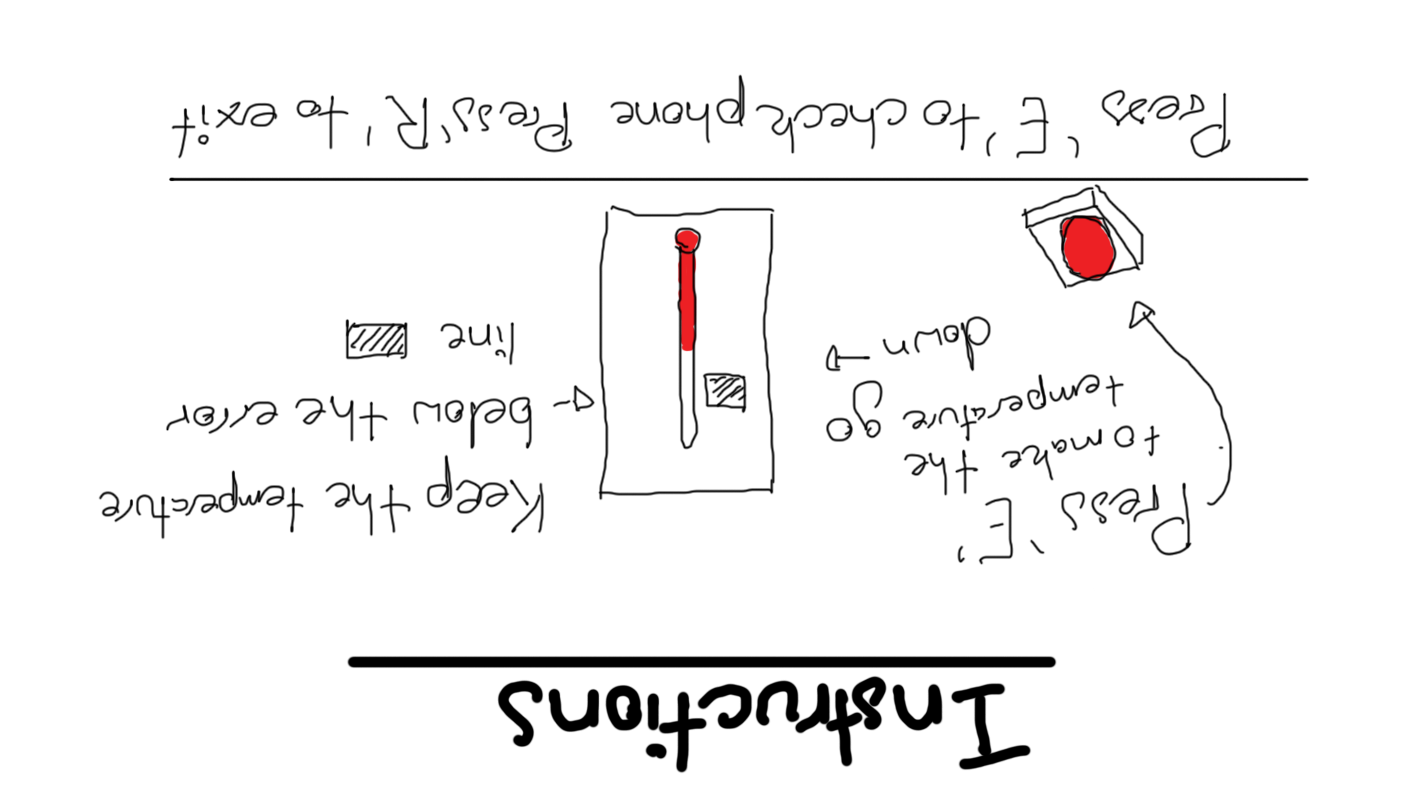 Instructions
Press 'E'
to make the
temperature go
down
Keep the temperature
below the error
line
Press 'E' to check phone Press 'R' to exit